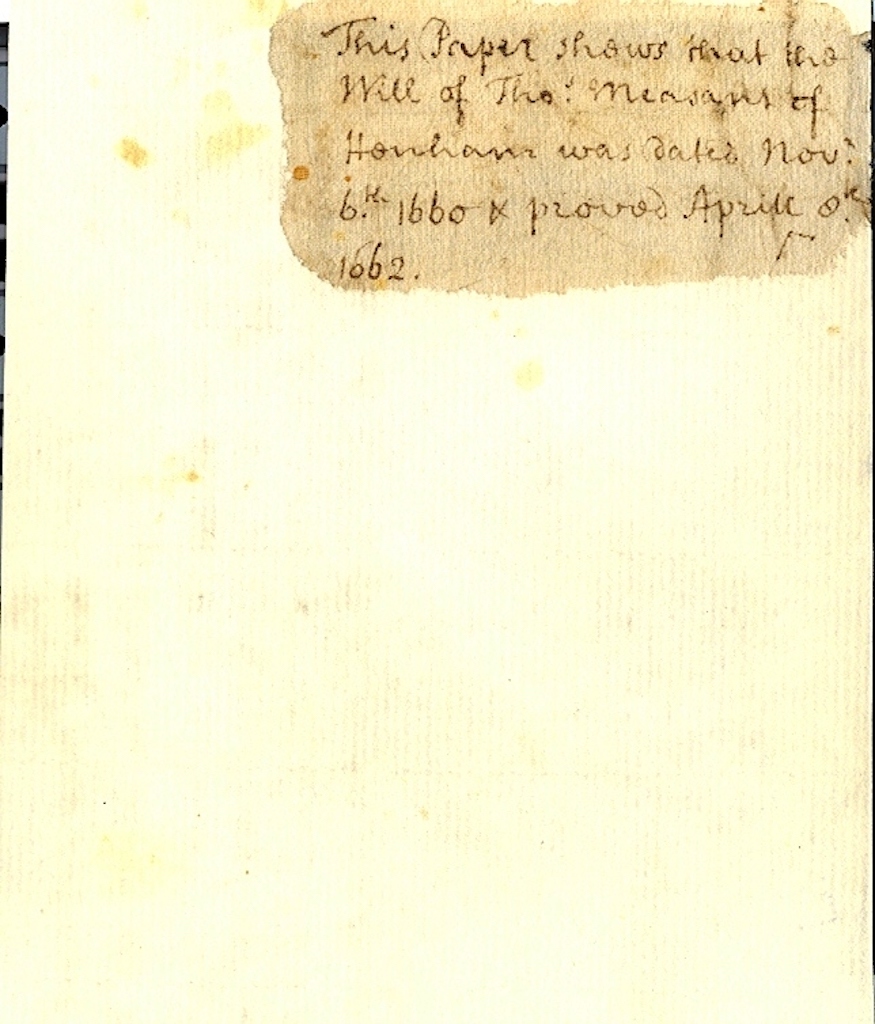 This Paper shews that the
Will of Tho.s Measans of
Henham was dated Nov.r
6.th 1660 & proved Aprill 8.th
1662.